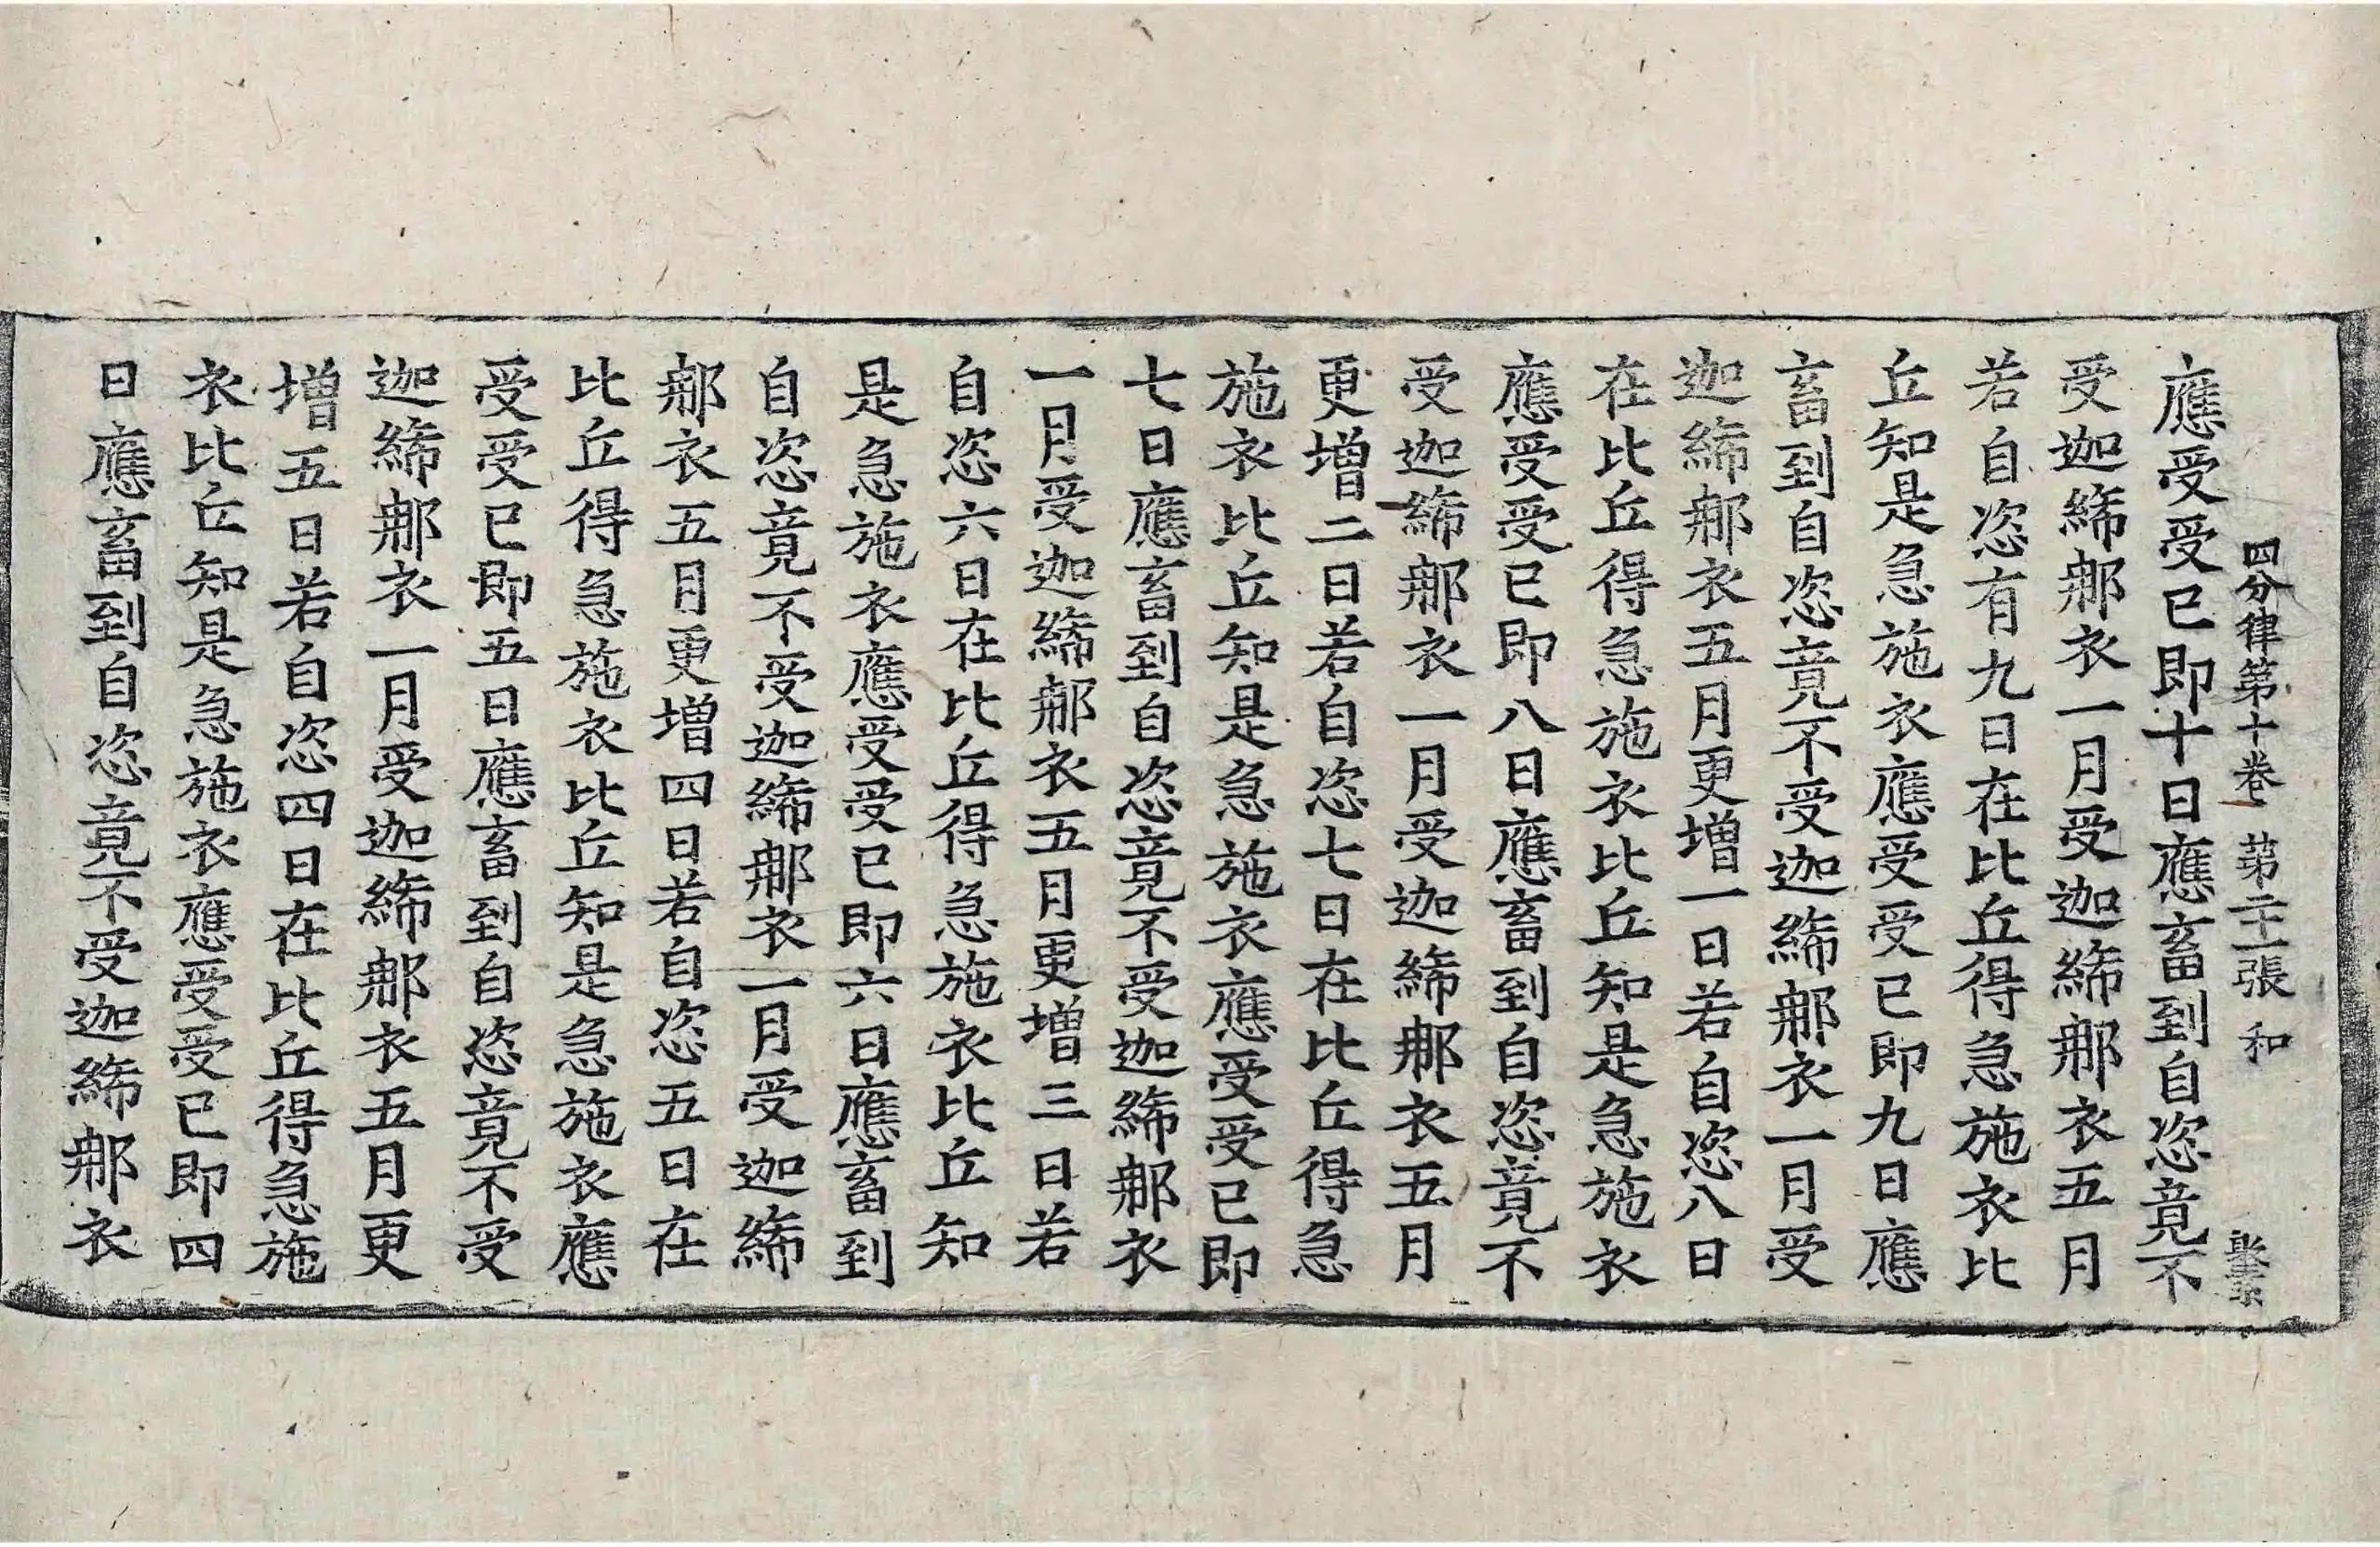 四分律第十卷 第二十一張 和
應受受已即十日應畜到自恣竟不
受迦絺那衣一月受迦絺那衣五月
若自恣有九日在比丘得急施衣比
丘知是急施衣應受受已即九日應
畜到自恣竟不受迦絺那衣一月受
迦絺那衣五月更增一日若自恣八日
在比丘得急施衣比丘知是急施衣
應受受已即八日應畜到自恣竟不
受迦絺那衣一月受迦絺那衣五月
更增二日若自恣七日在比丘得急
施衣比丘知是急施衣應受受已即
七日應畜到自恣竟不受迦絺那衣
一月受迦絺那衣五月更增三日若
自恣六日在比丘得急施衣比丘知
是急施衣應受受已即六日應畜到
自恣竟不受迦絺那衣一月受迦絺
那衣五月更增四日若自恣五日在
比丘得急施衣比丘知是急施衣應
受受已即五日應畜到自恣竟不受
迦絺那衣一月受迦絺那衣五月更
增五日若自恣四日在比丘得急施
衣比丘知是急施衣應受受已即四
日應畜到自恣竟不受迦絺那衣